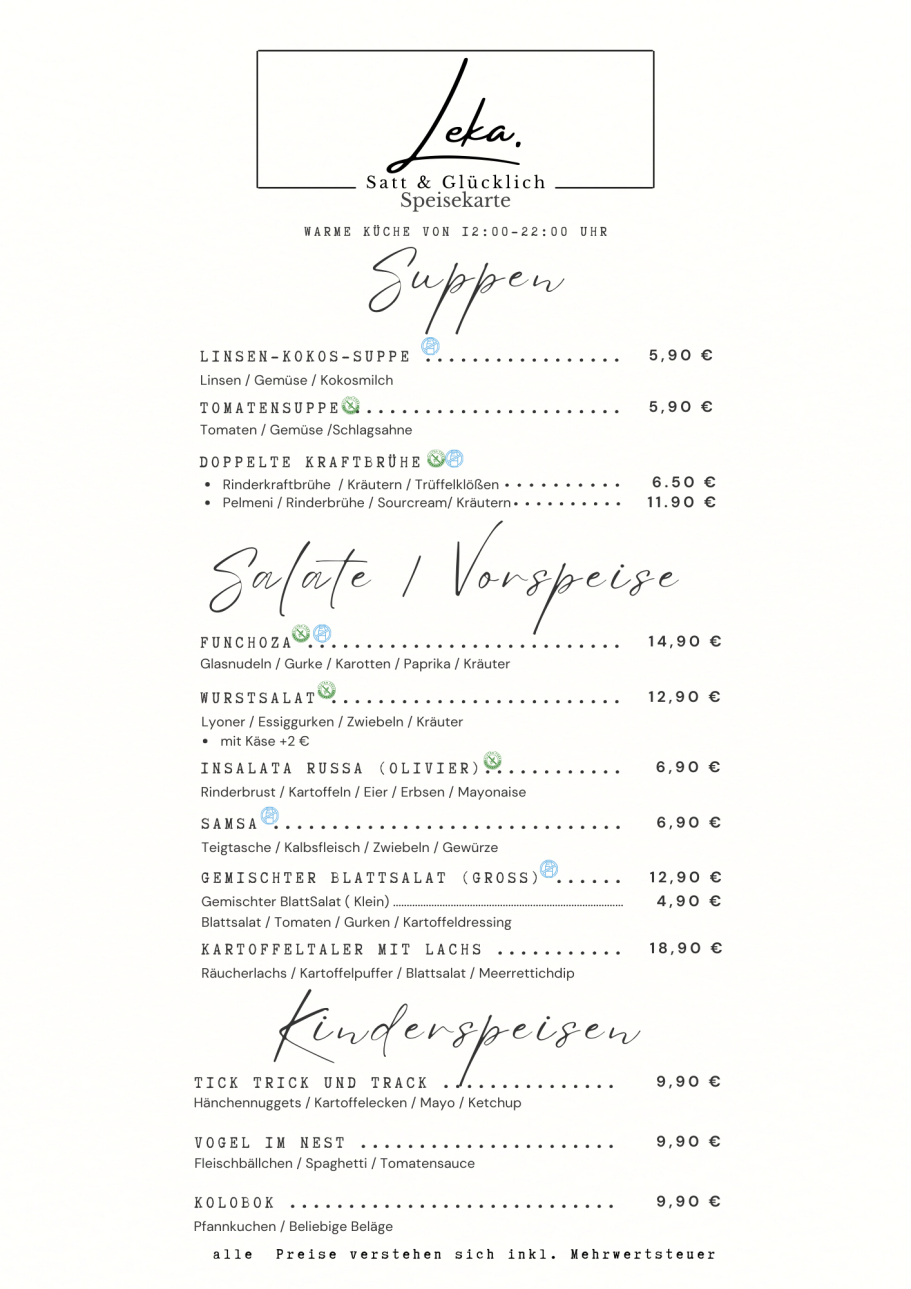 Leka.
Satt & Glücklich
Speisekarte
WARME KÜCHE VON 12:00-22:00 UHR
Suppen
LINSEN-KOKOS-SUPPE ................. 5,90 €
Linsen / Gemüse / Kokosmilch
TOMATENSUPPE....................... 5,90 €
Tomaten / Gemüse /Schlagsahne
DOPPELTE KRAFTBRÜHE
• Rinderkraftbrühe / Kräutern / Trüffelklößen .......... 6.50 €
• Pelmeni / Rinderbrühe / Sourcream/ Kräutern.......... 11.90 €
Salate / Vorspeise
FUNCHOZA........................... 14,90 €
Glasnudeln / Gurke / Karotten / Paprika / Kräuter
WURSTSALAT......................... 12,90 €
Lyoner / Essiggurken / Zwiebeln / Kräuter
• mit Käse +2 €
INSALATA RUSSA (OLIVIER)............ 6,90 €
Rinderbrust / Kartoffeln / Eier / Erbsen / Mayonaise
SAMSA.............................. 6,90 €
Teigtasche / Kalbsfleisch / Zwiebeln / Gewürze
GEMISCHTER BLATTSALAT (GROSS)...... 12,90 €
Gemischter BlattSalat ( Klein) ........................................ 4,90 €
Blattsalat / Tomaten / Gurken / Kartoffeldressing
KARTOFFELTALER MIT LACHS ........... 18,90 €
Räucherlachs / Kartoffelpuffer / Blattsalat / Meerrettichdip
Kinderspeisen
TICK TRICK UND TRACK ............... 9,90 €
Hänchennuggets / Kartoffelecken / Mayo / Ketchup
VOGEL IM NEST ...................... 9,90 €
Fleischbällchen / Spaghetti / Tomatensauce
KOLOBOK ............................ 9,90 €
Pfannkuchen / Beliebige Beläge
alle Preise verstehen sich inkl. Mehrwertsteuer